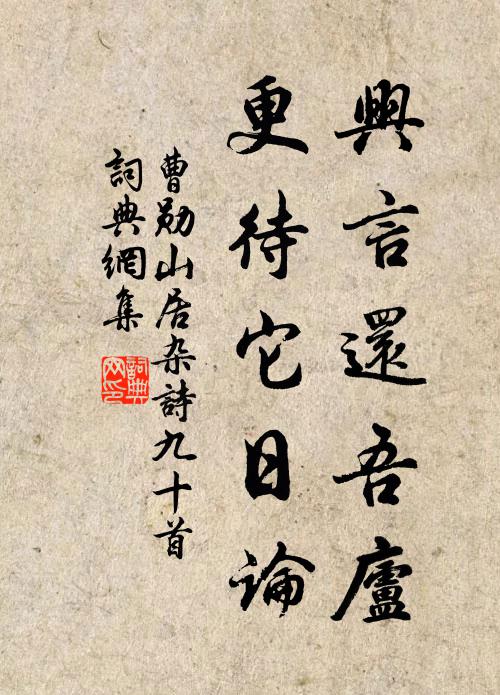 興言還吾廬
更待它日論
曹勋山居杂詩九十首
詞典網集
詞典
网印